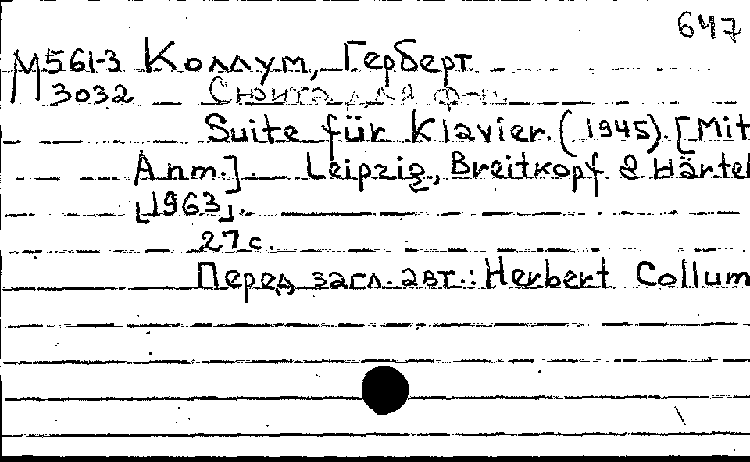 647
М561-3 Коллум, Герберт
3032 Сюита для ф-п.
Suite für Klavier. (1945). [Mit
Anm.]. Leipzig, Breitkopf & Härtel
[1963].
27 с.
Перед загл. авт.: Herbert Collum